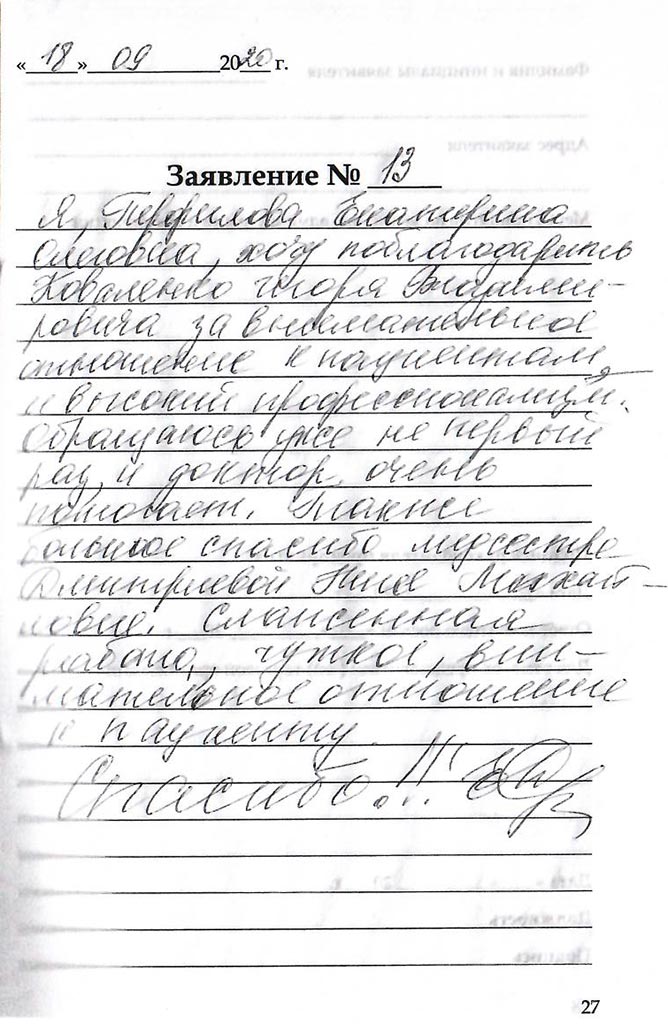 « 18 » 09 2020 г.
Заявление № 13
Я Перфилова Екатерина
Олеговна, хочу поблагодарить
Коваленко Игоря Владими-
ровича за внимательное
отношение к пациентам
и высокий профессионализм.
Обращаюсь уже не первый
раз, и доктор очень
помогает. Также
большое спасибо медсестре
Дмитриевой Нине Михай-
ловне. Слаженная
работа, чуткое, вни-
мательное отношение
к пациенту.
Спасибо!!!
27